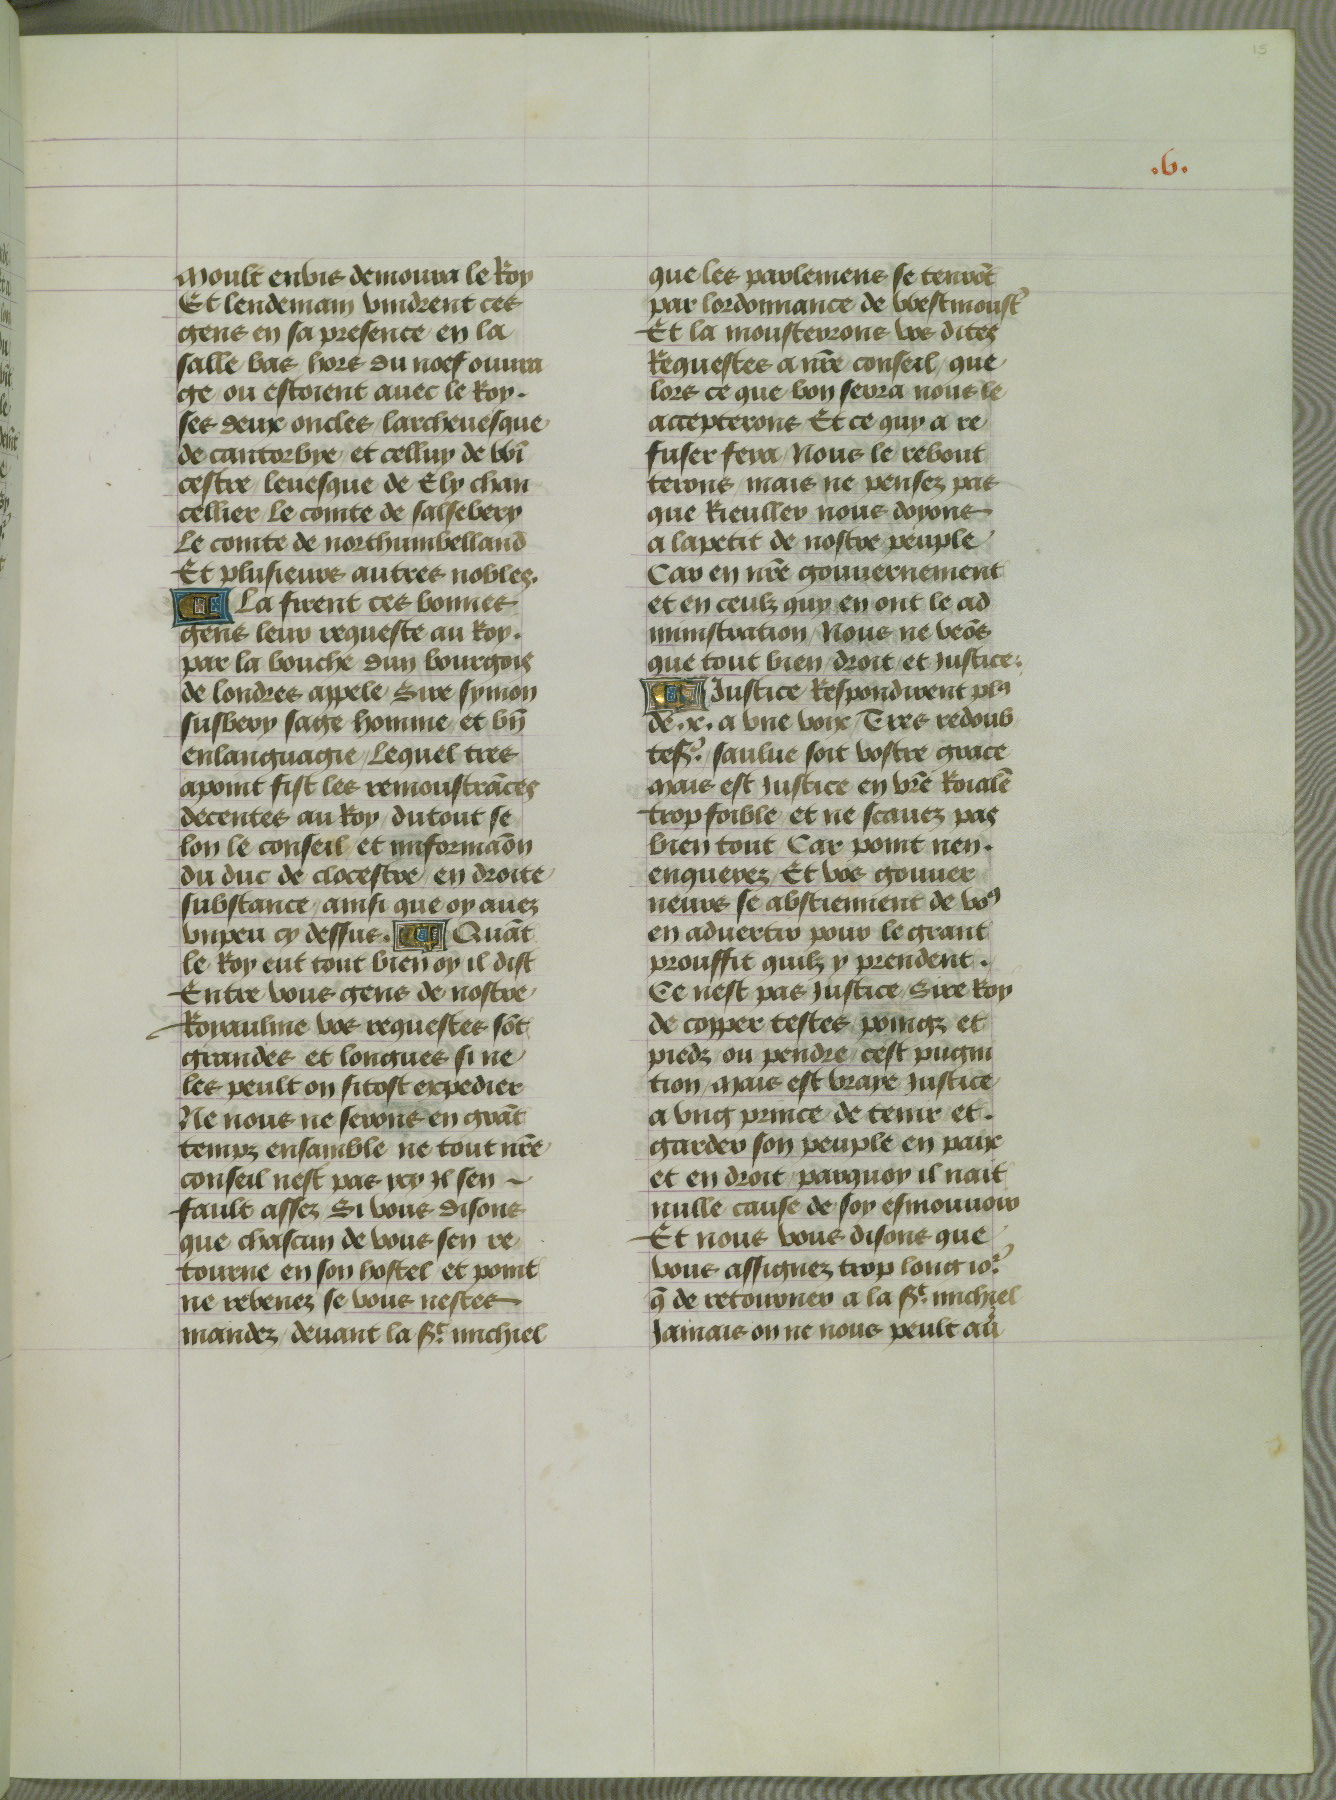 15
.v.
Moult envis demoura le Roy
Et lendemain vindrent ces
gens en sa presence en la
salle bas hors du noef ouura
ge ou estoient auec le Roy.
ses deux oncles larcheuesque
de cantorbye et celluy de wī
cestre leuesque de Ely chan
cellier le comte de salsebery
Le comte de northumbelland
Et plusieurs autres nobles.
La firent ces bonnes
gens leur requeste au Roy.
par la bouche dun bourgois
de londres appele Sire symon
susbery sage homme et bn̄
enlanguagie Lequel tres
apoint fist les remoustrāces
decentes au Roy dutout se
lon le conseil et informaōn
du duc de clocestre en droite
substance ainsi que oy auez
vnpeu cy dessus. Quāt
le Roy eut tout bien oy il dist
Entre vous gens de nostre
Royaulme vos requestes sōt
grandes et longues si ne
les peult on sitost expedier
Ne nous ne serons en grāt
tempz ensamble ne tout nr̄e
conseil nest pas ycy Il sen
fault assez Si vous disons
que chascun de vous sen re
tourne en son hostel et point
ne revenez se vous nestes
mandez deuant la st michiel
que les parlemens se tenrōt
par lordonnance de westmoust'
Et la mousterrons vos dites
Requestes a nr̄e conseil que
lors ce que bon sera nous le
accepterons Et ce quy a re
fuser fera Nous le rebout
terons mais ne pensez pas
que Rieuller nous doyons
a lapetit de nostre peuple
Car en nr̄e gouuernement
et en ceulz quy en ont le ad
ministration Nous ne veōs
que tout bien droit et Justice.
Justice Respondirent pl9
de .x. a vne voix Tres redoub
te sr. saulue soit vostre grace
Mais est Justice en vr̄e Roialē
trop foible et ne scauez pas
bien tout Car point nen.
enquerez Et vos gouuer
neurs se abstiennent de vo9
en aduertir pour le grant
prouffit quilz y prendent.
Ce nest pas Justice Sire Roy
de copper testes poingz et
piedz ou pendre cest pugni
tion Mais est vraye Justice
a vng prince de tenir et.
garder son peuple en paix
et en droit parquoy il nait
nulle cause de soy esmouuoir
Et nous vous disons que
vous assignez trop long ior
q̄ de retourner a la st michiel
Jamais on ne nous peult aū